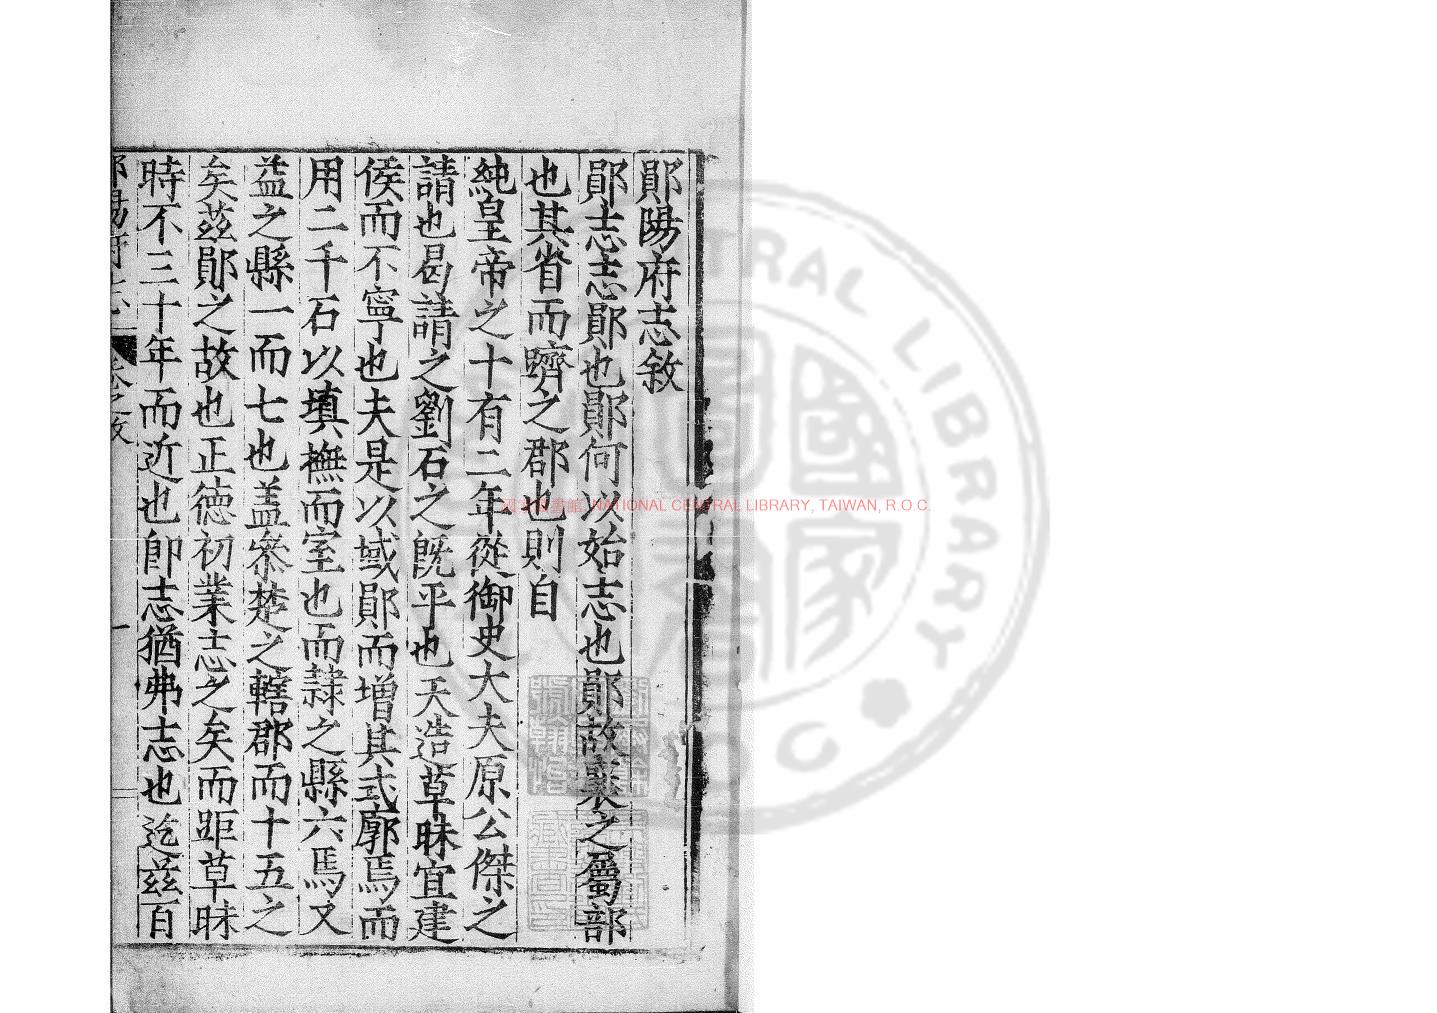 鄖陽府志敘
鄖志志鄖也鄖何以始志也鄖故襄之屬部
也其省而躋之郡也則自
純皇帝之十有二年從御史大夫原公傑之
請也曷請之劉石之既平也天造草昧宜建
侯而不寧也夫是以域鄖而增其式廓焉而
用二千石以填撫而室也而隷之縣六焉又
益之縣一而七也蓋叅楚之轄郡而十五之
矣茲鄖之故也正德初業志之矣而距草昧
時不三十年而近也卽志猶弗志也迄茲百
國家圖書館, NATIONAL CENTRAL LIBRARY, TAIWAN, R.O.C